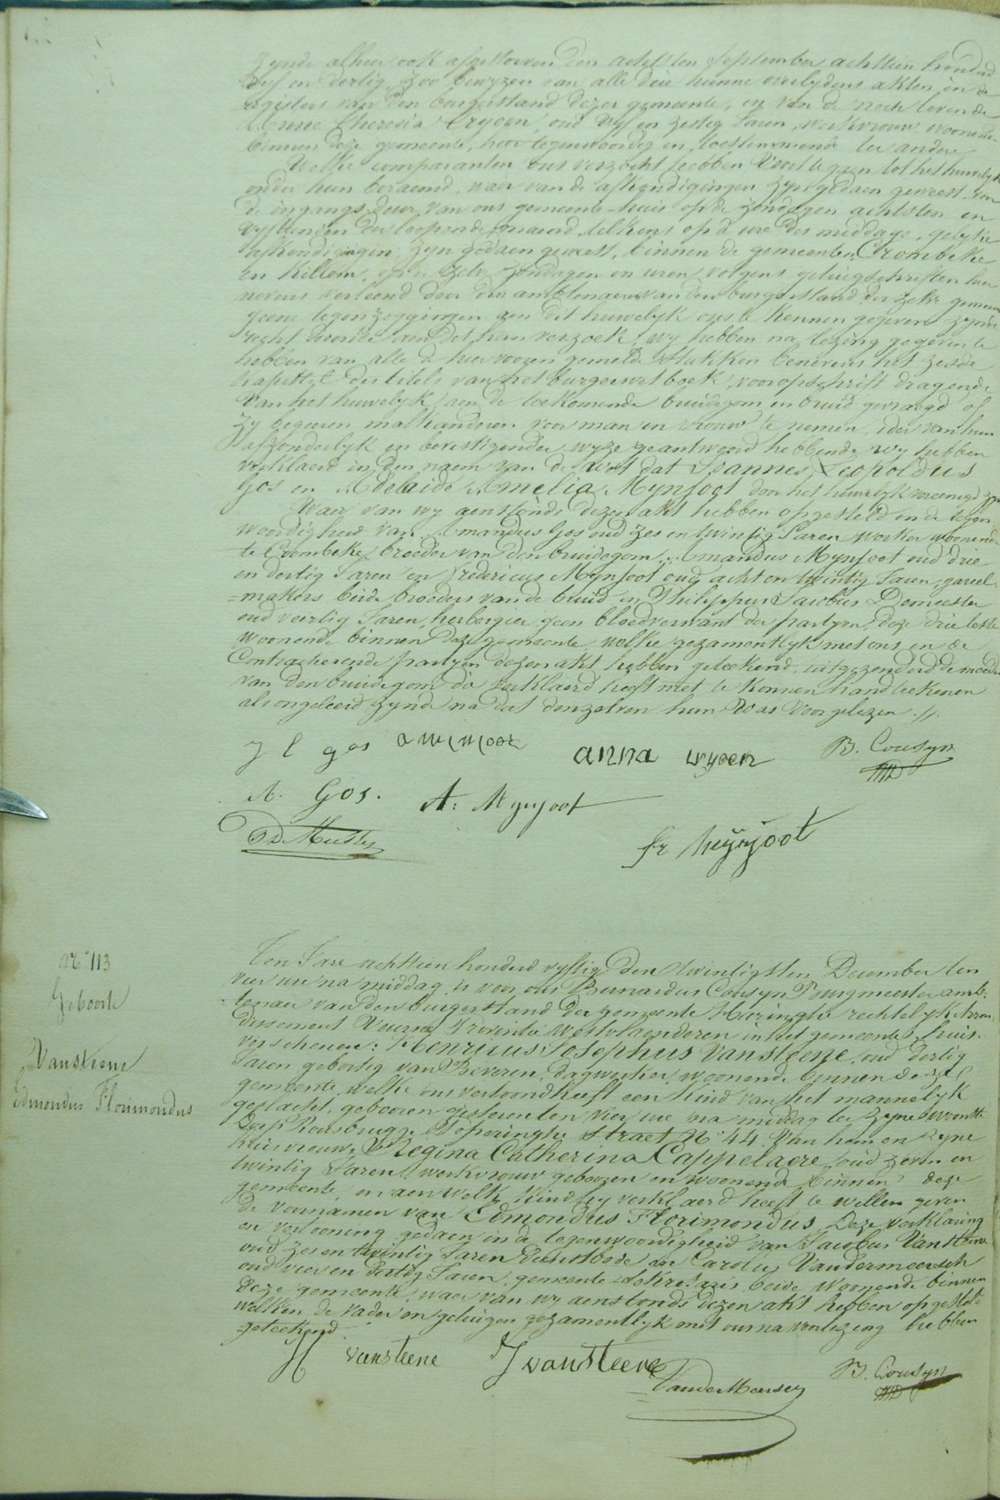 Zynde alhier ook afgestorven den achtsten September achttien honderd
vyf en dertig, zoo bewyzen van alle drie hunne overlydens akten, in de
registers van den borgerstand dezer gemeente, en van de noch levende
Theresia Crypen, oud vyf en zestig Jaren, werkvrouw, woonende
binnen deze gemeente, hier tegenwoordig en toestemmende ter andere
Welke comparanten ons verzocht hebben voort te gaen tot het huwelyk
onder hun beraemd, waer van de afkondigingen zyn gedaen geweest, voor
de ingangs deur van ons gemeente-huis op de zondagen achtsten en
vyftienden der loopende maend, telkens op d'ure des middags, gelyke
afkondigingen zyn gedaen geweest, binnen de gemeenten Crombeke
en Killem, op de zelve zondagen en uren, volgens getuigschriften hier
nevens verleend door den ambtenaer van den burgerstand der zelve gemeenten
geene tegenzeggingen aen dit huwelyk ons te kennen gegeven zynde
recht doende aen hun verzoek, wy hebben na lezing gegeven te
hebben van alle de hier voren gemelde stukken benevens het zesde
kapittel des titels van het burgerwetboek, voor opschrift dragende
Van het huwelyk, aen de toekomende bruidegom en bruid gevraegd of
zy begeeren malkanderen voor man en vrouw te nemen, ider van hun
afzonderlyk en bevestigender wyze geantwoord hebbende, wy hebben
verklaerd in den naem van de wet dat Joannes Leopoldus
Gos en Adelaide Amelia Mynfoot door het huwelyk vereenigd zyn
Waer van wy aenstonds dezen akt hebben opgesteld in de tegen
woordigheid van Amandus Gos oud zes en twintig Jaren werker woonende
te Crombeke, broeder van den bruidegom, Amandus Mynfoot oud drie
en dertig Jaren en Fredericus Mynfoot oud acht en twintig Jaren, gareel
=makers beide broeders van de bruid en Philippus Jacobus Demeester
oud veertig Jaren, herbergier geen bloedverwant der partyen, deze drie laeste
woonende binnen deze gemeente, welke gezamentlyk met ons en de
Contracteerende partyen dezen akt hebben geteekend, uitgezonderd de moeder
van den bruidegom die verklaerd heeft niet te konnen handteekenen
als ongeleerd zynde na dat denzelven hun was voorgelezen.//.
J l gos anna wyoen B. Cousyn
A. Gos. A. Mynfoot
DMeester fr Meynfoot
N° 113
Geboorte
Vansteene
Edmondus Florimondus
Ten Jare achttien honderd vyftig den twintigsten December ten
vier ure na middag, is voor ons Bernardus Cousyn Burgmeester ambt-
tenaer van den burgerstand der gemeente Haringhe rechterlyk Arron
dissement Veurne, Provintie Westvlaenderen in het gemeente huis
verschenen: Henricus Josephus Vansteene, oud dertig
Jaren geboortig van Beveren, dagwerker, woonende binnen deze
gemeente, welke ons vertoond heeft een kind van het mannelyk
geslacht, geboren gisteren ten vier ure na middag ter zyne woonste
Dorp Rousbrugge Poperinghe Straet N° 44 Van hem en zyne
huisvrouw Regina Catherina Cappelaere, oud zeven en
twintig Jaren, werkvrouw geboren en woonende binnen deze
gemeente, en aen welk kind hy verklaerd heeft te willen geven
de voornamen van Edmondus Florimondus, Deze verklaring
en vertooning gedaen in de tegenwoordigheid van Jacobus Vansteene
oud zes en twintig Jaren, Dienstbode en Carolus Vandermeersch
oud vier en dertig Jaren, gemeente sekretaris, beide woonende binnen
deze gemeente, waer van wy aenstonds dezen akt hebben opgesteld
welken de vader en getuigen gezamentlyk met ons na voorlezing hebben
geteekend.
H vansteene J vansteene VanderMeersch B. Cousyn